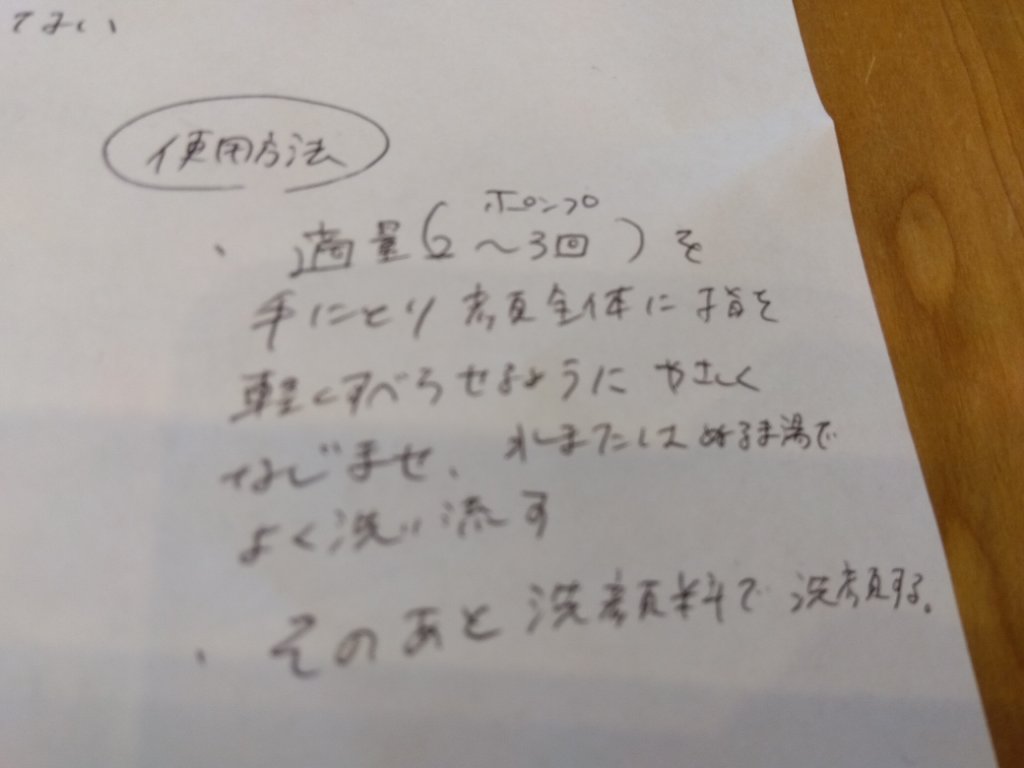 てない
使用方法
・適量(2〜3回)を
ポンプ
手にとり顔全体に指を
軽くすべらせるようにやさしく
なじませ、水またはぬるま湯で
よく洗い流す
・そのあと洗顔料で洗顔する。